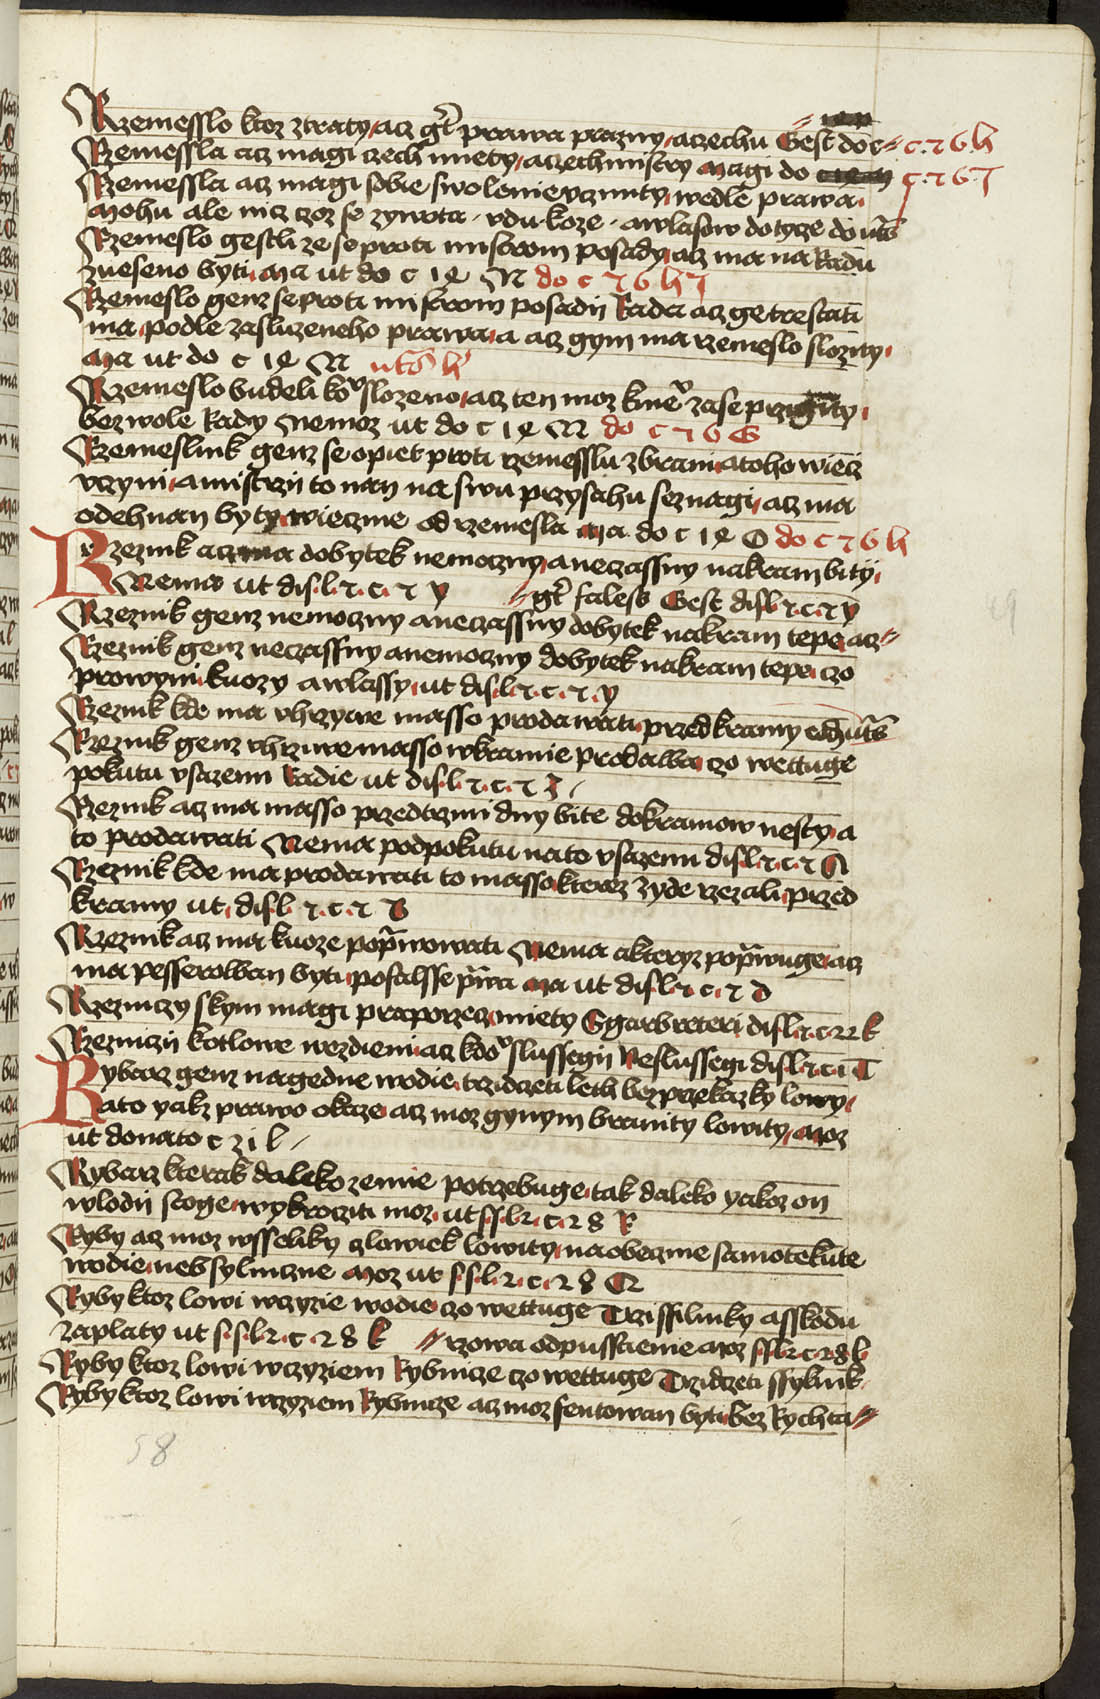 Rzemesslo ktoz ztraty acz gt prawa prazny aczechu Gest do c c. 26 h
Rzemessla acz magi czech miety aczechmistry Magi do c. 26. I
Rzemessla acz magi sobie swolenie vcziniti wedle prawa
Mohu ale nicz czoz se zywota vdu koze a wlasow dotycze do uts
Rzemeslo gestli ze se proti mistrom posady acz ma na Radu
zneseno byti Ma ut do c 19 N do c 26 h I
Rzemeslo genz se proti mistrom posadij Rada acz ge trestati
ma podle zasluzeneho prawa a acz gym ma rzemeslo slozity
Ma ut do c 19 N uts h
Rzemeslo budeli slozeno acz ten moz zase
bez wole Rady Nemoz ut do c 19 M do c 26 G
Rzemeslnik genz se opiet proti rzemesslu zbrani atoho wiecz
vczyni amistrzii to nan na swu przysahu seznagi acz ma
odehnan byty wieczne od rzemesla Ma do c 19 O do c 26 h
Rzeznik acz ma dobytek nemoczny aneczassny nakram bity
Nema ut dis.l. 2. c. 2 y gt faless Gest dis l 2 c. 2 y
Rzeznik genz nemoczny aneczassny dobytek nakram tepe acz
Rzeznik genz neczassny anemoczny dobytek nakram tepe czo
prowyni kuozy awlassy ut dis.l. 2. c. 2. y
Rzeznik kde ma vhrzywe masso prodawati przed kramy uts
Rzeznik genz vhrziwe masso wkramie prodalba czo wettuge
pokutu vsazenu Radie ut dis.l. 2. c. 2 I
Rzeznik acz ma masso przed trzmi dny bite dokramow nesty a
to prodawati Nema podpokutu nato vsazenu dis.l. 2. c. 2 A
Rzeznik kde ma prodawati to masso kterez zyde rzezali przed
kramy ut dis.l. 2. c. 2 B
Rzeznik acz ma kuoze poprawowati Nema akteryz poprawuge acz
ma pesserolban byti pofalsse prawa Ma ut dis.l. 2 c. 2 d
Rzezniczy skym magi praporzecz miety Sgarbreteri dis.l. 2. c. 22 k
Rzezniczij kotlowe wezdieni acz kdo slussegij Neslussegi dis.l. 2 c. 1 T
Rybarz genz nagedne wodie trzidczeti leth bezprzekazky lowy
Ato yakz prawo okaze acz moz gynym branity lowity Moz
ut donato c 21 l
Rybarz kterak daleko zemie potrzebuge tak daleko yakoz on
wlodij stoge wykrocziti moz ut s.s.l. 2. c. 28 R
Ryby acz moz wsseliky czlowiek lowity naobeczne samotekute
wodie neb sylniczne Moz ut s.s.l. 2. c. 28 Q
Ryby ktoz lowi wczyzie wodie czo wettuge Trzi ssilinky asskodu
zaplaty ut s.s.l. 2. c. 28 k rzowa odpusstienie Moz s.s.l. 2. c. 28 l
Ryby ktoz lowi wczyziem Rybnicze czo wettuge Trzidczeti ssylink
Ryby ktoz lowi wczyziem Rybnicze acz moz sentowan byti bez Rychta
58